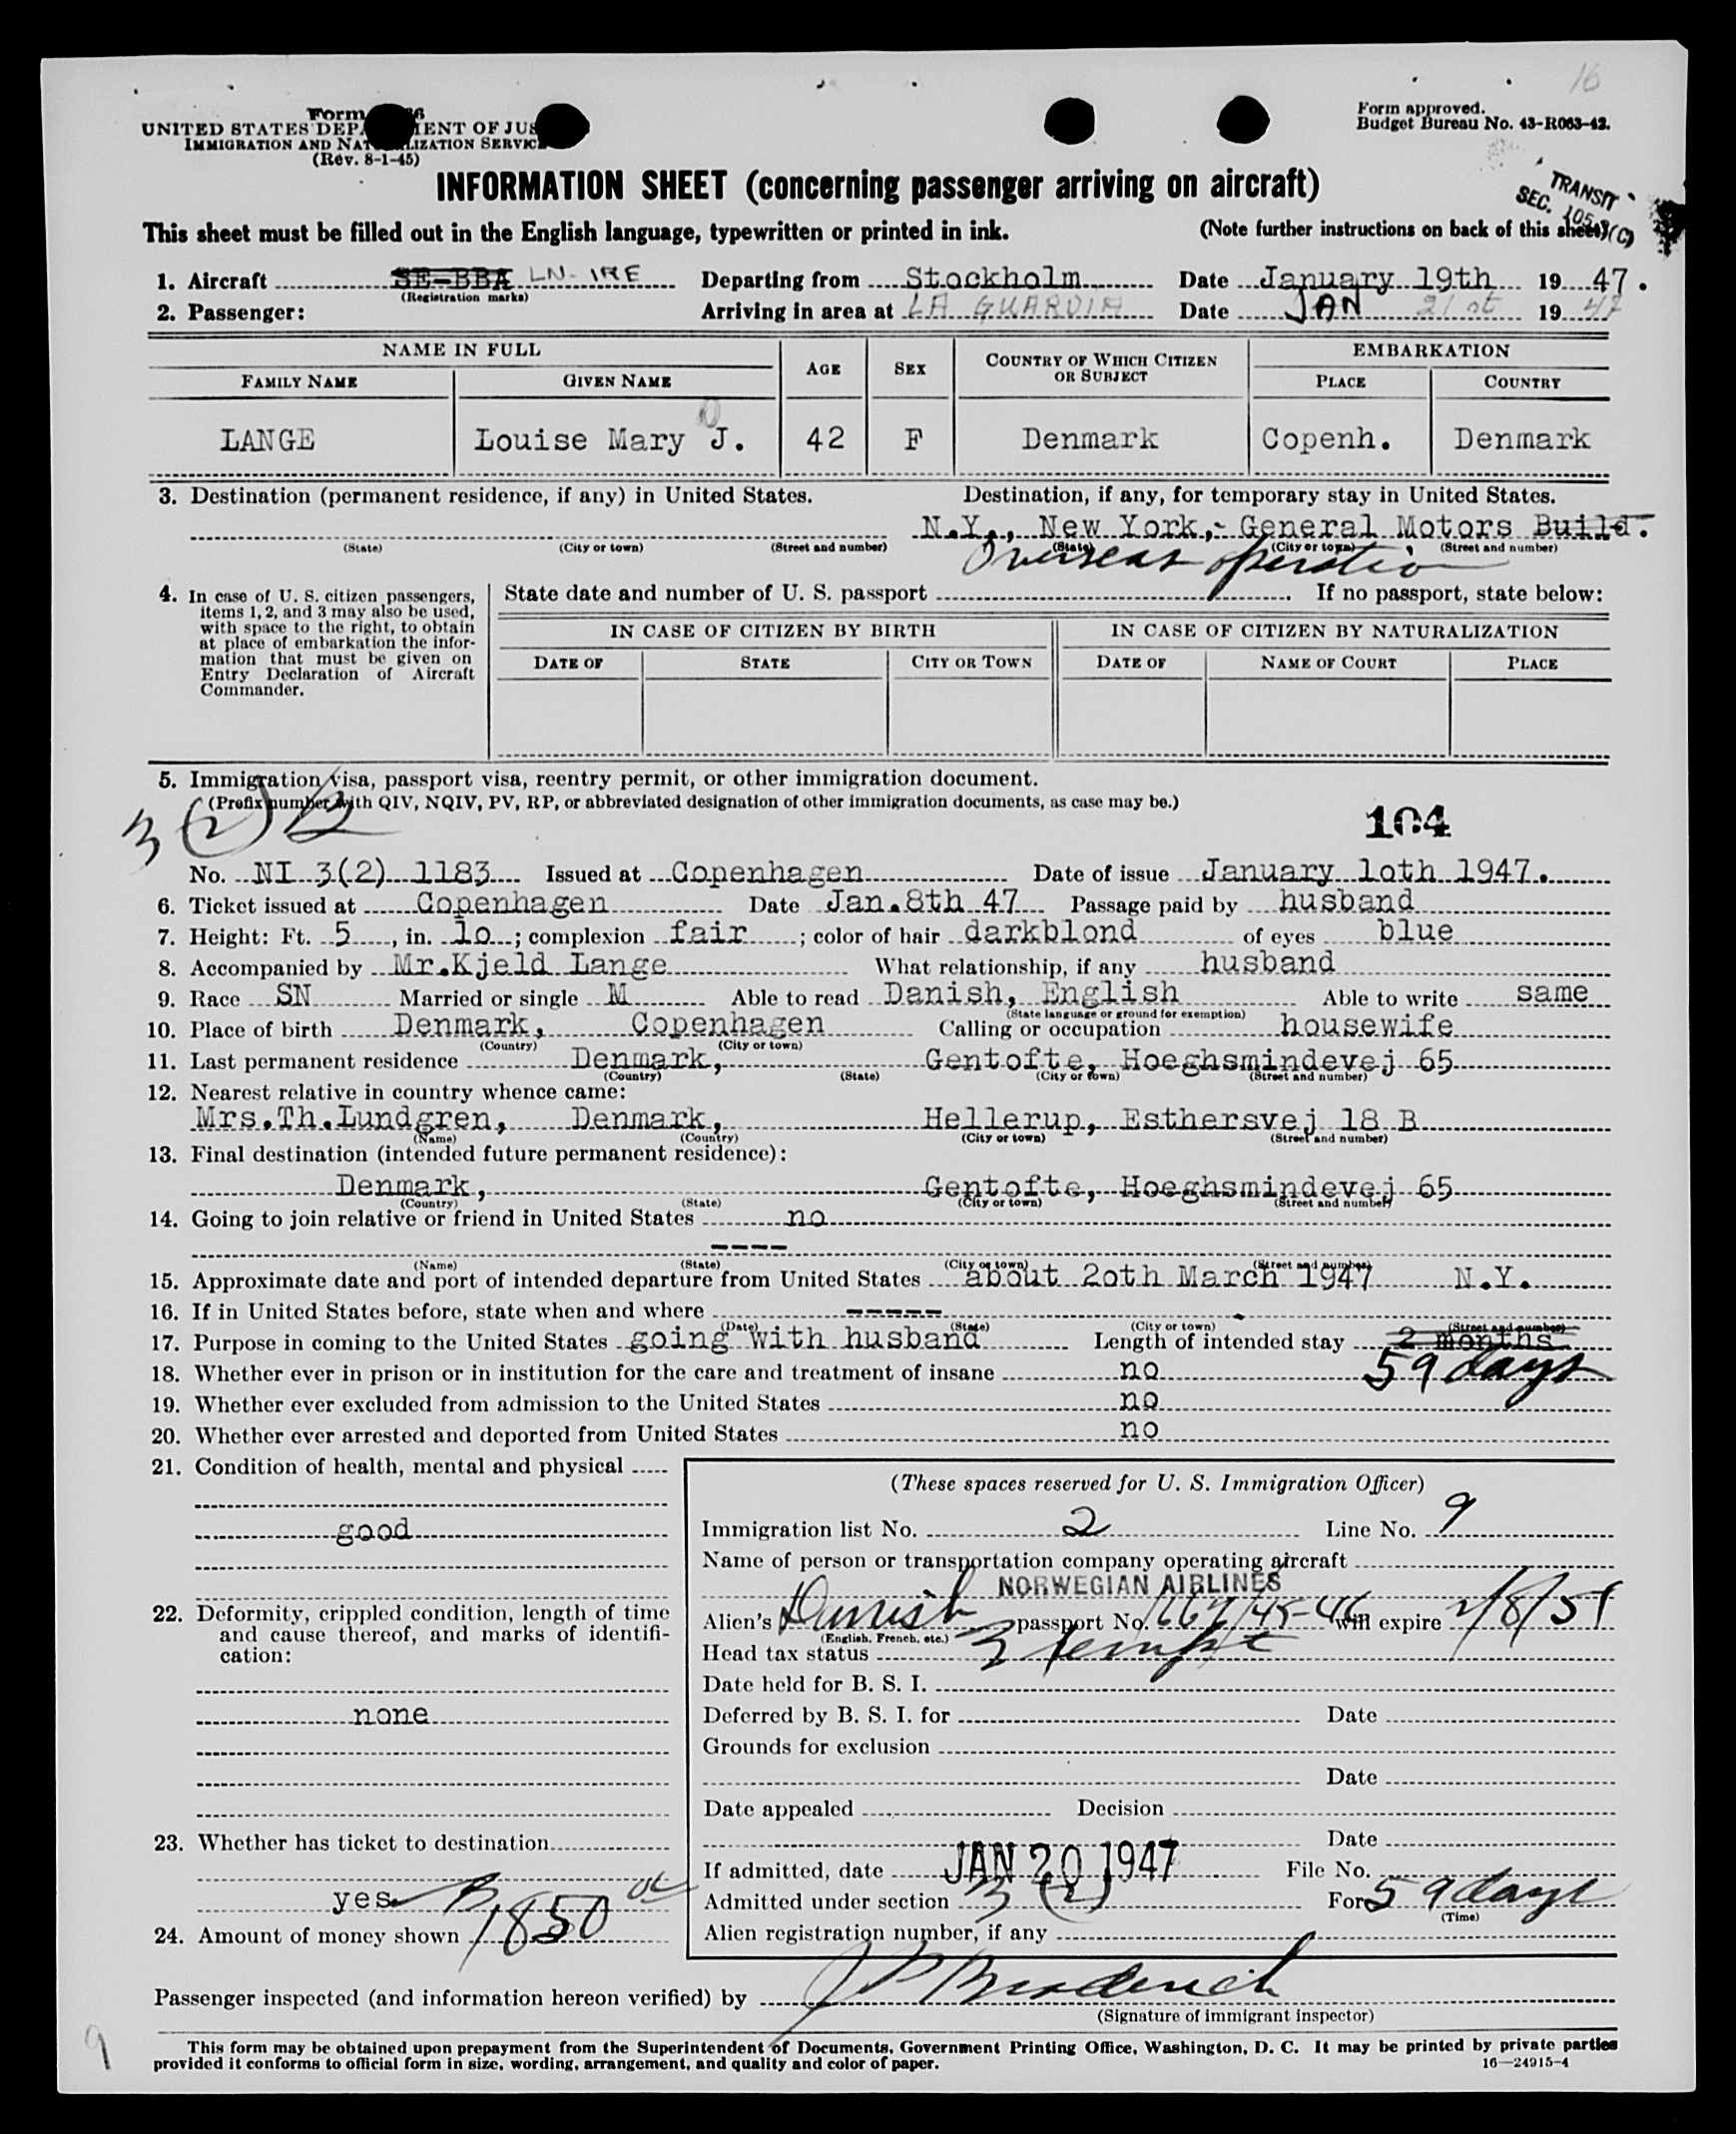 16
Form approved.
Budget Bureau No. 43-R063-42.
Form
UNITED STATES DEPARTMENT OF JUSTICE
IMMIGRATION AND NATURALIZATION SERVICE
(Rev. 8-1-45)
TRANSIT
SEC. 105.3(C)
INFORMATION SHEET (concerning passenger arriving on aircraft)
This sheet must be filled out in the English language, typewritten or printed in ink. (Note further instructions on back of this sheet)
1. Aircraft SE-BBA LN-IRE Departing from Stockholm Date January 19th 1947.
(Registration marks)
2. Passenger: Arriving in area at LA GUARDIA Date JAN 21st 1947
NAME IN FULL AGE SEX COUNTRY OF WHICH CITIZEN OR SUBJECT EMBARKATION
FAMILY NAME GIVEN NAME PLACE COUNTRY
LANGE Louise Mary J. 42 F Denmark Copenh. Denmark
3. Destination (permanent residence, if any) in United States. Destination, if any, for temporary stay in United States.
N.Y., New York,- General Motors Build.
(State) (City or town) (Street and number) (State) (City or town) (Street and number)
Overseas operation
4. In case of U. S. citizen passengers, items 1, 2, and 3 may also be used, with space to the right, to obtain at place of embarkation the information that must be given on Entry Declaration of Aircraft Commander.
State date and number of U. S. passport If no passport, state below:
IN CASE OF CITIZEN BY BIRTH IN CASE OF CITIZEN BY NATURALIZATION
DATE OF STATE CITY OR TOWN DATE OF NAME OF COURT PLACE
5. Immigration visa, passport visa, reentry permit, or other immigration document.
(Prefix number with QIV, NQIV, PV, RP, or abbreviated designation of other immigration documents, as case may be.)
3 (2)
104
No. NI 3(2) 1183 Issued at Copenhagen Date of issue January 1oth 1947.
6. Ticket issued at Copenhagen Date Jan.8th 47 Passage paid by husband
7. Height: Ft. 5, in. 1o; complexion fair; color of hair darkblond of eyes blue
8. Accompanied by Mr.Kjeld Lange What relationship, if any husband
9. Race SN Married or single M Able to read Danish, English Able to write same
(State language or ground for exemption)
10. Place of birth Denmark, Copenhagen Calling or occupation housewife
(Country) (City or town)
11. Last permanent residence Denmark, Gentofte, Hoeghsmindevej 65
(Country) (State) (City or town) (Street and number)
12. Nearest relative in country whence came:
Mrs.Th.Lundgren, Denmark, Hellerup, Esthersvej 18 B
(Name) (Country) (City or town) (Street and number)
13. Final destination (intended future permanent residence):
Denmark, Gentofte, Hoeghsmindevej 65
(Country) (State) (City or town) (Street and number)
14. Going to join relative or friend in United States no
----
(Name) (State) (City or town) (Street and number)
15. Approximate date and port of intended departure from United States about 2oth March 1947 N.Y.
16. If in United States before, state when and where -----
(Date) (State) (City or town) (Street and number)
17. Purpose in coming to the United States going with husband Length of intended stay 2 months
59 days
18. Whether ever in prison or in institution for the care and treatment of insane no
19. Whether ever excluded from admission to the United States no
20. Whether ever arrested and deported from United States no
21. Condition of health, mental and physical
good
22. Deformity, crippled condition, length of time and cause thereof, and marks of identification:
none
23. Whether has ticket to destination
yes
24. Amount of money shown 1850
(These spaces reserved for U. S. Immigration Officer)
Immigration list No. 2 Line No. 9
Name of person or transportation company operating aircraft
NORWEGIAN AIRLINES
Alien's Danish passport No. 1667/45-46 will expire 2/8/51
(English, French, etc.)
Head tax status Exempt
Date held for B. S. I.
Deferred by B. S. I. for Date
Grounds for exclusion
Date
Date appealed Decision
Date
If admitted, date JAN 20 1947 File No.
Admitted under section 3 (2) For 59 days
(Time)
Alien registration number, if any
Passenger inspected (and information hereon verified) by J P Broderick
(Signature of immigrant inspector)
9
This form may be obtained upon prepayment from the Superintendent of Documents, Government Printing Office, Washington, D. C. It may be printed by private parties
provided it conforms to official form in size, wording, arrangement, and quality and color of paper. 16—24915-4